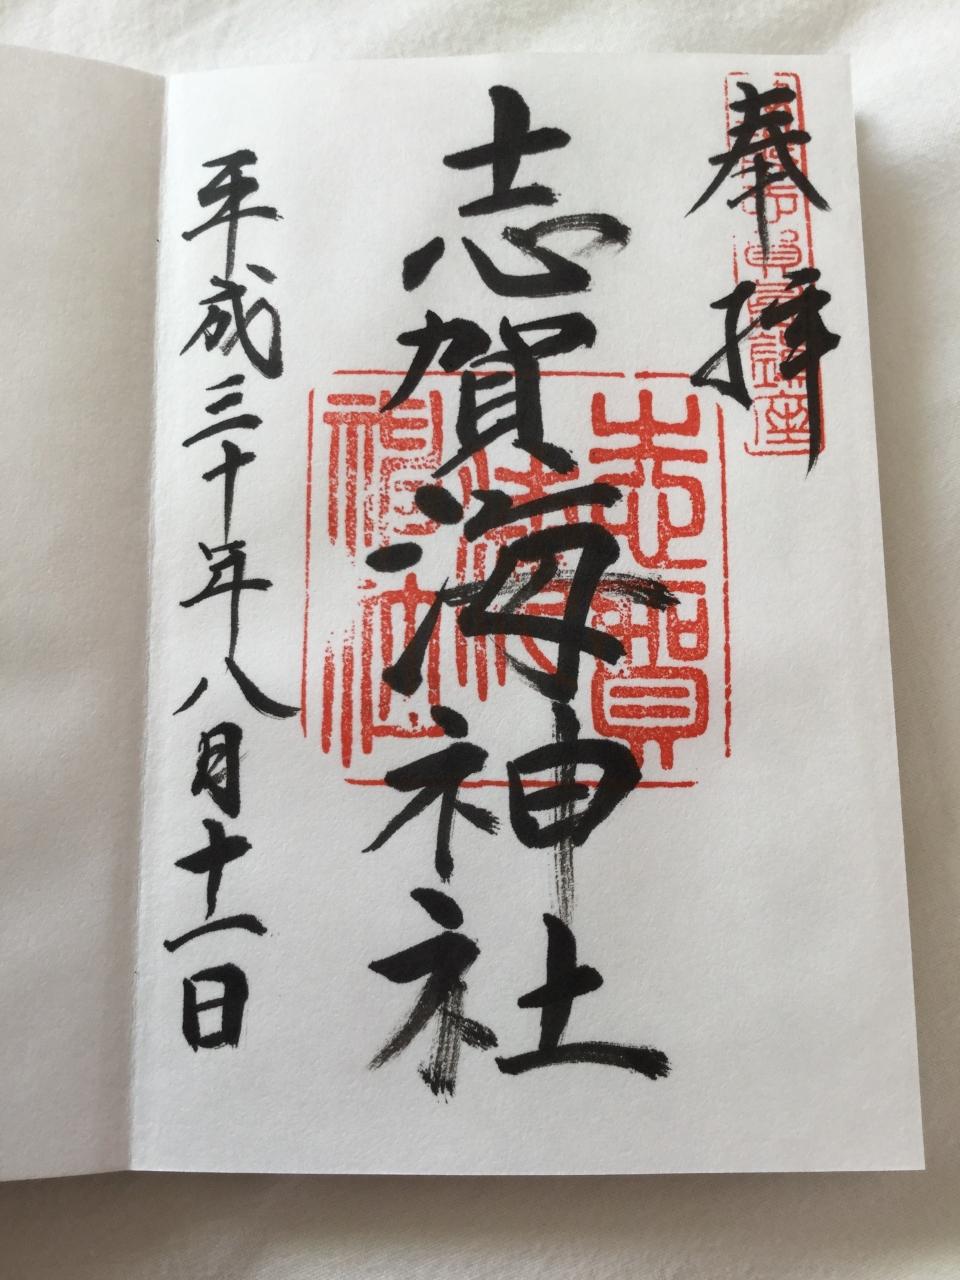 奉拝
志賀海神社
志賀海神社
平成三十年八月十一日